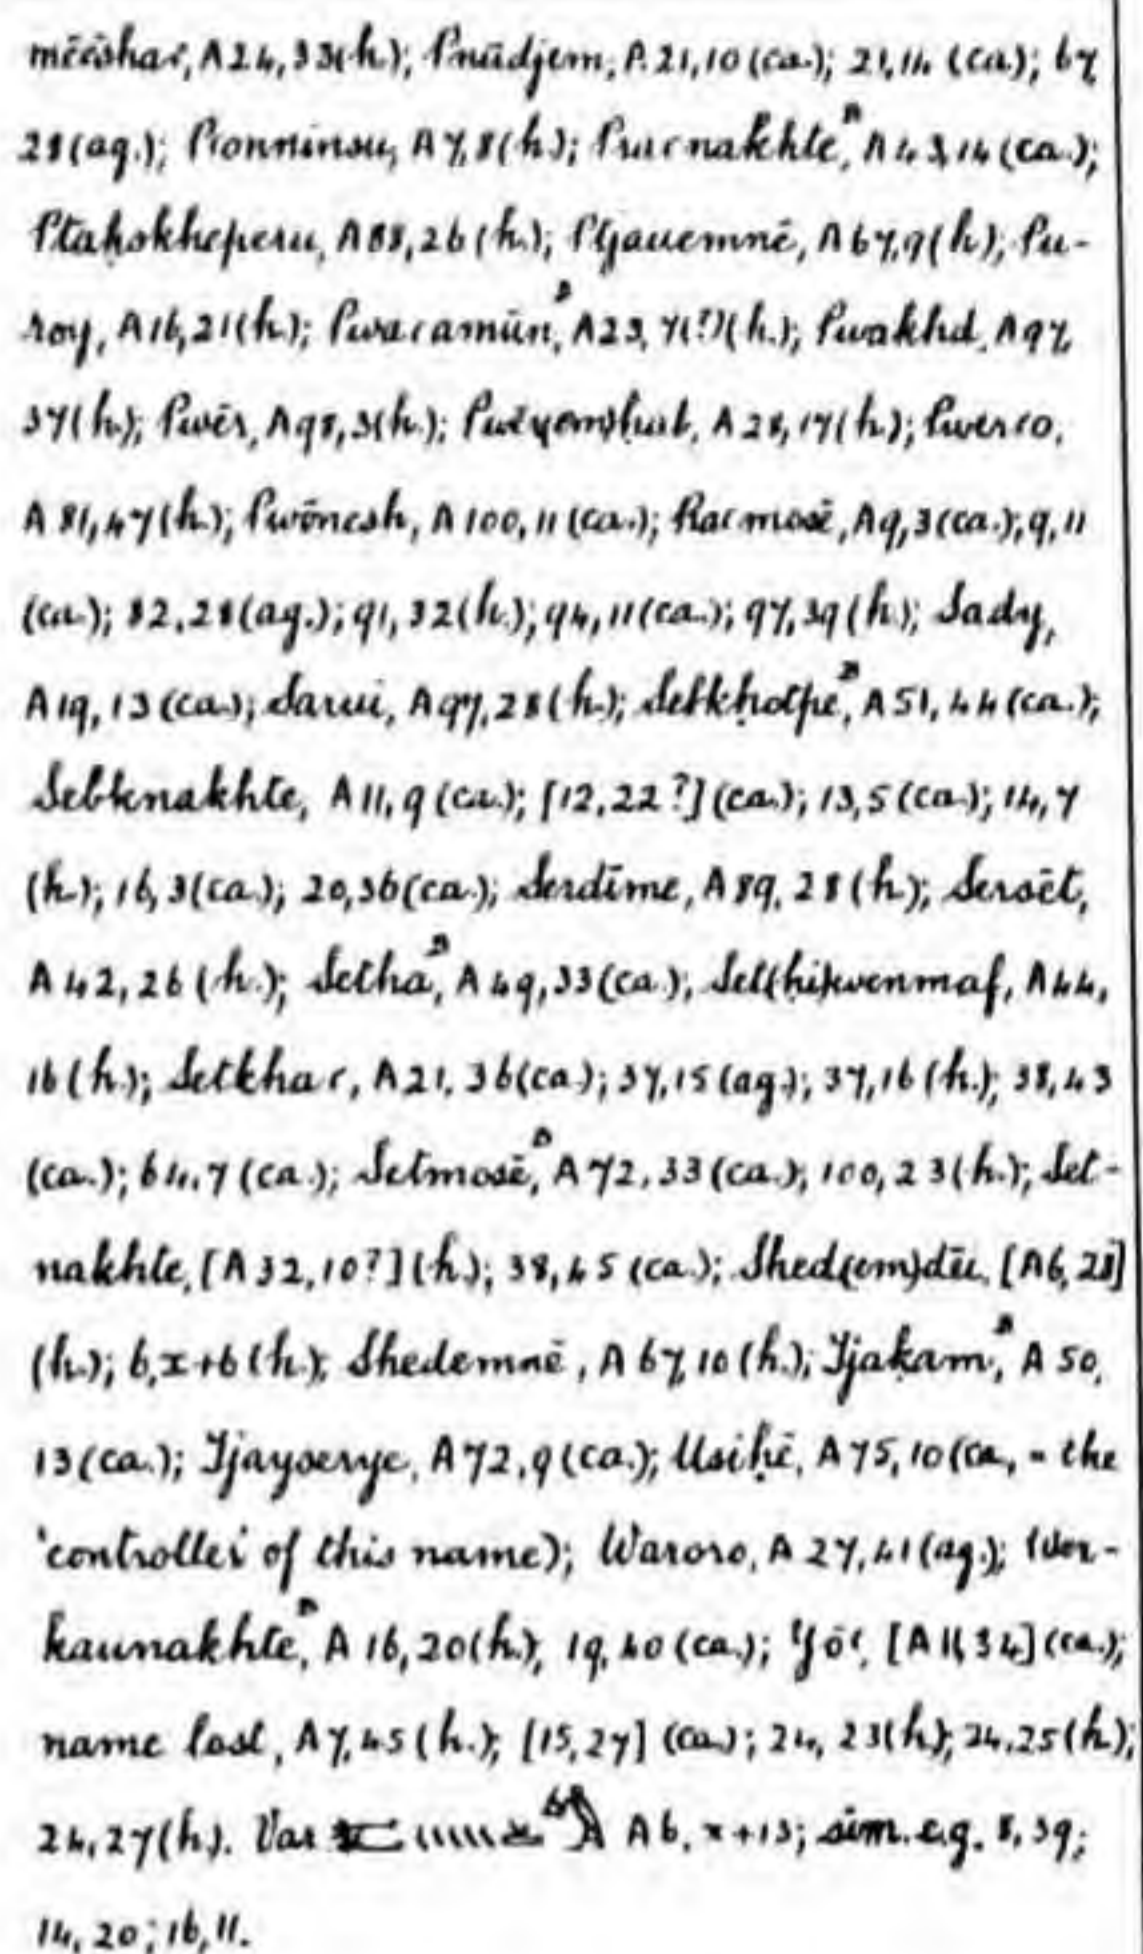 mēcshac, A24,33(h.); Pnūdjem, A21,10(ca.); 21,14 (ca.); 67,
28(ag.); Pronninsu, A7,8(h.); Pracnakhte,ᴰ A43,14(ca.);
Ptaḥokheperu, A88,26(h.); Ptjauemnē, A67,9(h.); Pu-
roy, A16,21(h.); Pwacamūn,ᴰ A23,7(?)(h.); Pwakhd, A97,
37(h.); Pwēr, A98,3(h.); Pwēr(em)ḥab, A28,17(h.); Pwerco,
A81,47(h.); Pwōnesh, A100,11(ca.); Racmosĕ, A9,3(ca.); 9,11
(ca.); 82,28(ag.); 91,32(h.); 94,11(ca.); 97,39(h.); Sady,
A19,13(ca.); Sarui, A97,28(h.); Sebkḥotpe,ᴰ A51,44(ca.);
Sebknakhte, A11,9(ca.); [12,22?](ca.); 13,5(ca.); 14,7
(h.); 16,3(ca.); 20,36(ca.); Serdīme, A89,28(h.); Sersēt,
A42,26(h.); Setha,ᴰ A49,33(ca.); Set(ḥi)wenmaf, A44,
16(h.); Setkhac, A21,36(ca.); 37,15(ag.); 37,16(h.); 38,43
(ca.); 64,7(ca.); Setmosĕ,ᴰ A72,33(ca.); 100,23(h.); Set-
nakhte, [A32,10?](h.); 38,45(ca.); Shed(em)dēi, [A6,28]
(h.); 6,x+6(h.); Shedemnē, A67,10(h.); Tjaḳam,ᴰ A50,
13(ca.); Tjayserye, A72,9(ca.); Usiḥē, A75,10(ca., = the
'controller' of this name); Waroro, A27,41(ag.); Wer-
kaunakhte,ᴰ A16,20(h.); 19,40(ca.); 'Yōc, [A11,34](ca.);
name lost, A7,45(h.); [15,27](ca.); 24,23(h.); 24,25(h.);
24,27(h.). Var A6,x+13; sim. e.g. 8,39;
14,20; 16,11.